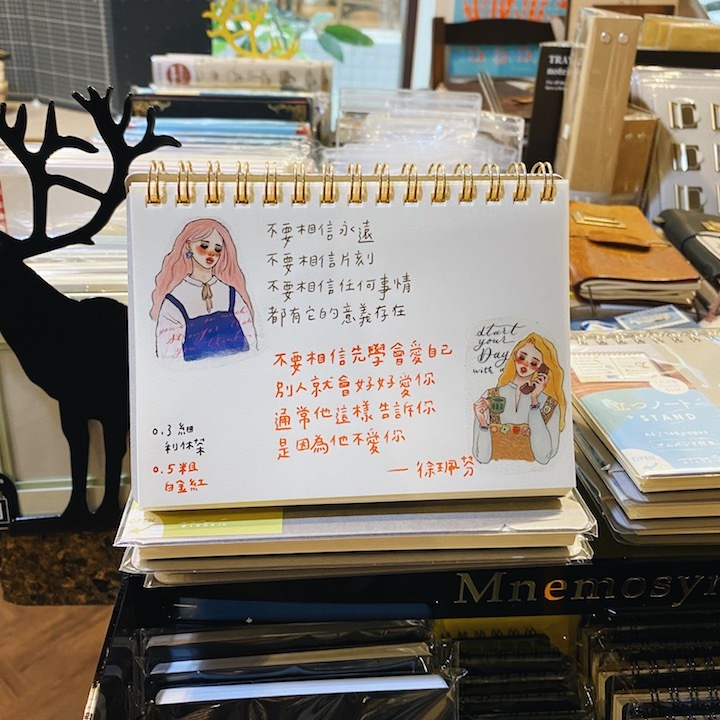 不要相信永遠
不要相信片刻
不要相信任何事情
都有它的意義存在
不要相信先學會愛自己
別人就會好好愛你
通常他這樣告訴你
是因為他不愛你
— 徐珮芬
0.3細
利休茶
0.5粗
白金紅
start
your
Day
with a
立つノート
STAND
Mnemosy